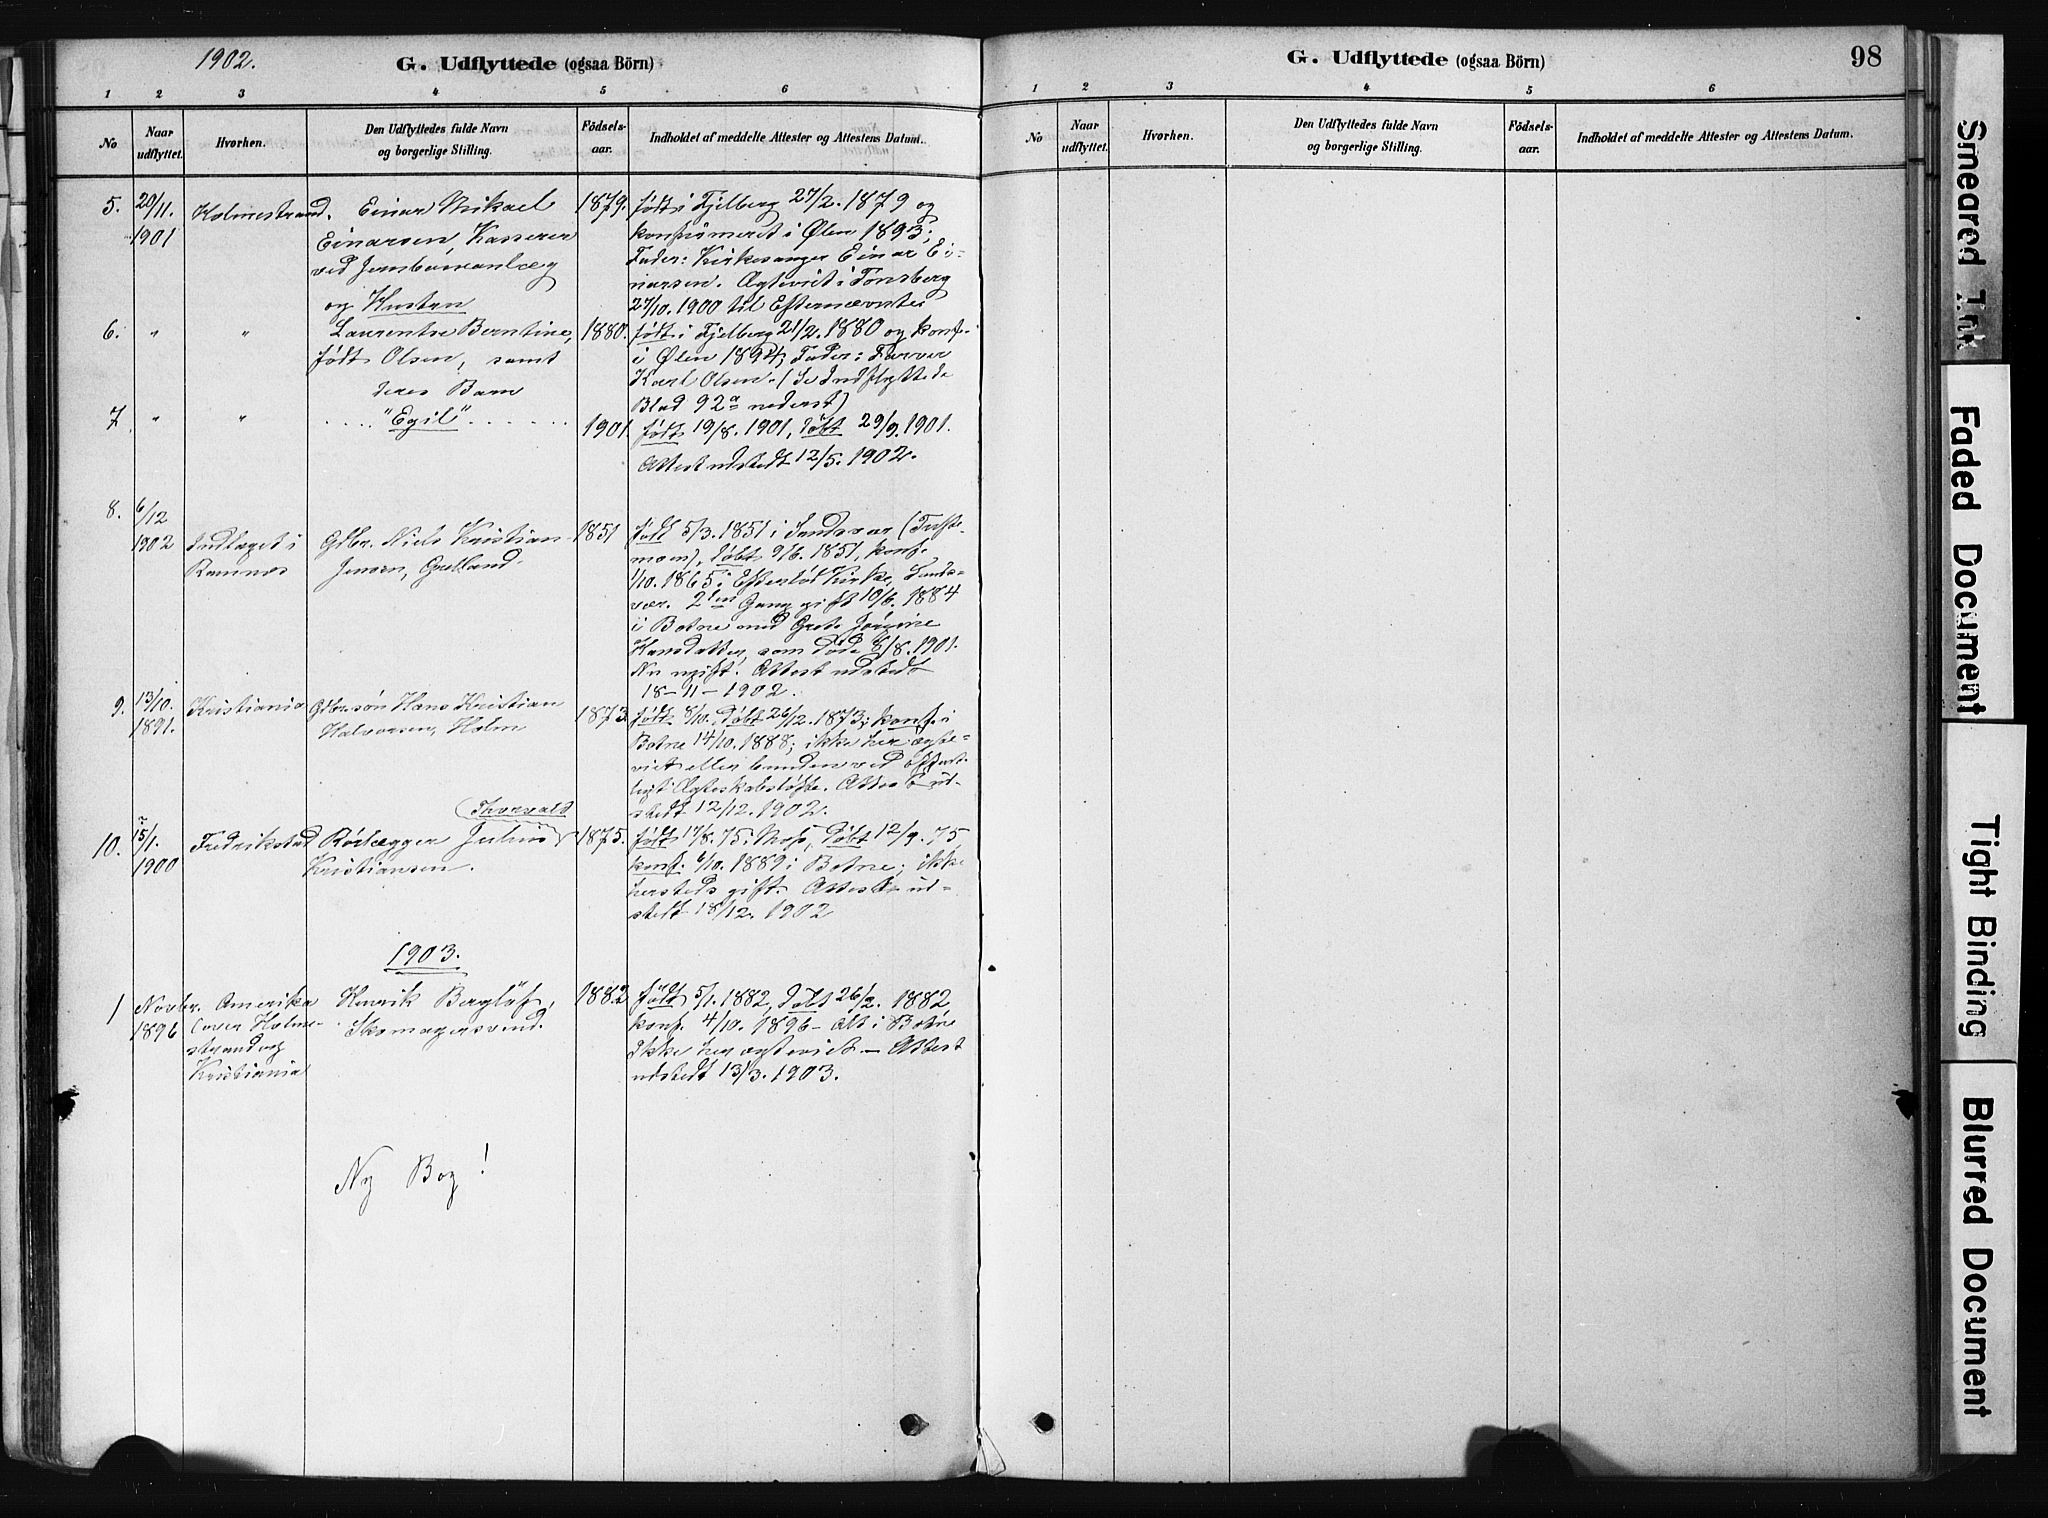 1902.
G. Udflyttede (ogsaa Börn)
1 2 3 4 5 6
No
Naar udflyttet.
Hvorhen.
Den Udflyttedes fulde Navn og borgerlige Stilling.
Födsels-aar.
Indholdet af meddelte Attester og Attestens Datum.
5. 20/11. 1901
Holmestrand.
Einar Mikael
Einarsen, Kasserer
ved Jernbaneanlæg
og Hustru
1879.
født i Fjelberg 27/2. 1879 og
konfirmeret i Ølen 1893;
Fader: Kirkesanger Einar Ei-
narsen. Ægteviet i Tønsberg
27/10. 1900 til Efternævnte
6. " "
Laurentse Berntine,
født Olsen, samt
deres Barn
1880.
født i Fjelberg 21/2. 1880 og konf.
i Ølen 1894; Fader: Farver
Karl Olsen. (Se Indflyttede
Blad 92a nederst)
7. " "
.... "Egil" ......
1901.
født 19/8. 1901, døbt 29/9. 1901.
Attest udstedt 12/5. 1902.
8. 6/12 1902
Indtaget i
Ramnes
Gdbr. Niels Kristian
Jensen, Grelland.
1851
født 5/3. 1851 i Sandsvær (Tufte-
moen), døbt 9/6. 1851, konf.
1/10. 1865 i Efteløt Kirke, Sands-
vær. 2den Gang gift 10/6. 1884
i Botne med Grete Jørgine
Hansdatter, som døde 8/8. 1901.
Nu ugift. Attest udstedt
18-11-1902.
9. 13/10. 1891.
Kristiania
Gdbr.søn Hans Kristian
Halvorsen, Holm
1873.
født 8/10. døbt 26/12. 1873; konf. i
Botne 14/10. 1888; ikke her ægte-
viet eller bunden ved offent-
ligt Ægteskabsløfte. Attest ud-
stedt 12/12. 1902.
10. 15/1. 1900
Fredrikstad
(Thorvald
Rørlægger Julius
Kristiansen.
1875.
født 17/8. 75 i Moss, døbt 12/9. 75
konf. 6/10. 1889 i Botne; ikke
hersteds gift. Attest ud-
stedt 18/12. 1902
1903.
1 Novbr. 1896
Amerika
(over Holme-
strand og
Kristiania
Henrik Bergløf,
Skomagersvend.
1882
født 5/1. 1882, døbt 26/2. 1882
konf. 4/10. 1896 - Alt i Botne
Ikke her ægteviet - Attest
udstedt 13/3. 1903.
Ny Bog!
G. Udflyttede (ogsaa Börn)
98
1 2 3 4 5 6
No
Naar udflyttet.
Hvorhen.
Den Udflyttedes fulde Navn og borgerlige Stilling.
Födsels-aar.
Indholdet af meddelte Attester og Attestens Datum.
Smeared Ink
Faded Document
Tight Binding
Blurred Document